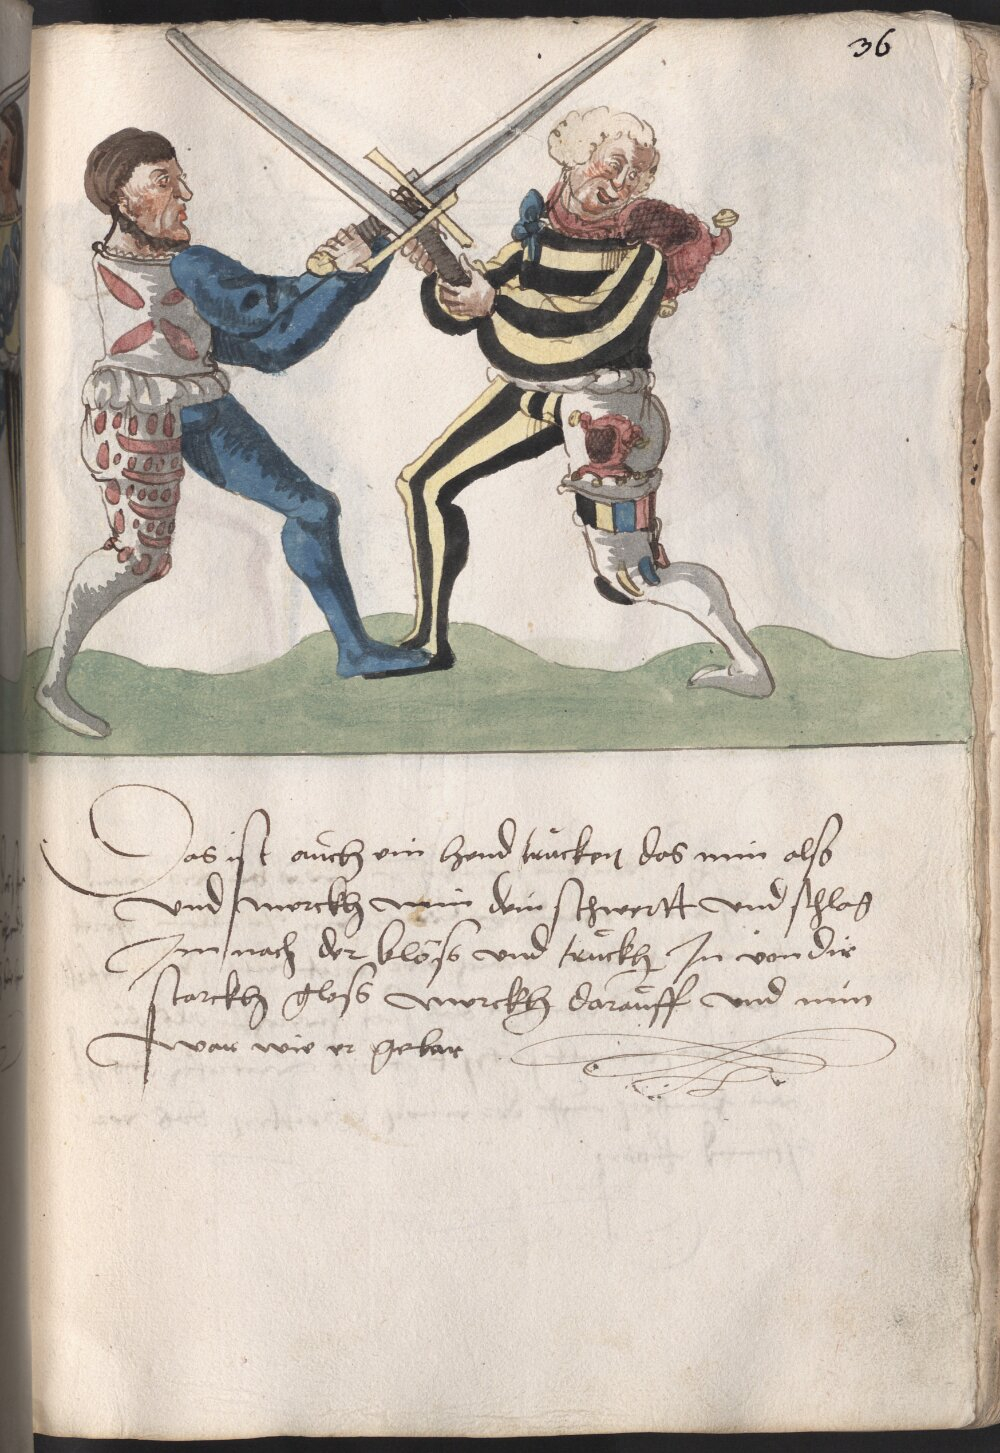 36
Das ist auch ein hend trucken das nim alß
und merckh nim dein schwertt und schlag
Im nach der blöss und truckh In von dir
starckh gloss merckh darauff und nim
war wie er gebar